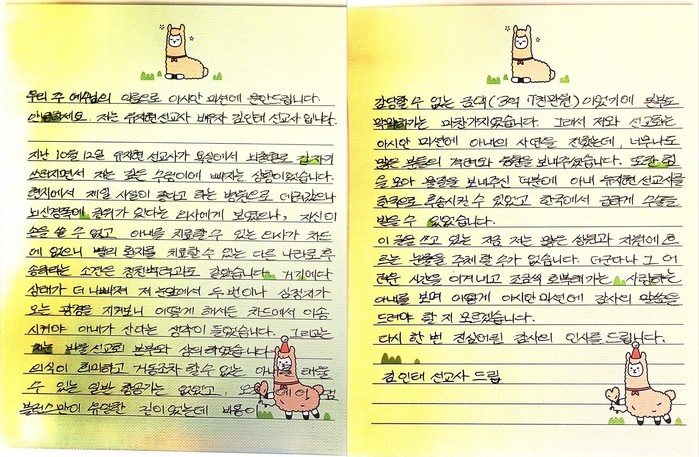 우리 주 예수님의 이름으로 아시안 미션에 문안드립니다.
안녕하세요. 저는 유지현선교사 배우자 김인태 선교사 입니다.
지난 10월 12일 유지현 선교사가 욕실에서 뇌출혈로 갑자기
쓰러지면서 저는 깊은 수렁이에 빠지는 심정이었습니다.
현지에서 제일 시설이 좋다고 하는 병원으로 데려갔으나
뇌신경쪽에 권위가 있다는 의사에게 보였으나, 자신이
손을 쓸 수 없고 아내를 치료할 수 있는 의사가 차드
에 없으니 빨리 환자를 치료할 수 있는 다른 나라로 후
송하라는 소견은 청천벽력과도 같았습니다. 거기에다
상태가 더 나빠져 제 눈앞에서 두 번이나 심정지가
오는 광경을 지켜보니 어떻게 해서든 차드에서 이송
시켜야 아내가 산다는 생각이 들었습니다. 그리고는
바울선교회 본부와 상의하였습니다.
의식이 희미하고 거동조차 할 수 없는 아내를 태울
수 있는 일반 항공기는 없었고, 오직 에어 앰
뷸런스만이 유일한 길이었는데 비용이
감당할 수 없는 금액(3억 7천만원)이었기에 본부도
막막하기는 마찬가지였습니다. 그래서 저와 선교회는
아시안 미션에 아내의 사연을 전했는데, 너무나도
많은 분들의 격려와 응원을 보내주셨습니다. 또한 힘
을 모아 물질을 보내주신 덕분에 아내 유지현 선교사를
한국으로 후송시킬 수 있었고 한국에서 급하게 수술을
받을 수 있었습니다.
이 글을 쓰고 있는 지금 저는 많은 상념과 저밑에 흐
르는 눈물을 주체 할 수가 없습니다. 더군다나 그 어
려운 시간을 이겨내고 조금씩 회복해가는 사랑하는
아내를 보며 어떻게 아시안 미션에 감사의 말씀을
드려야 할 지 모르겠습니다.
다시 한 번 진심어린 감사의 인사를 드립니다.
김인태 선교사 드림